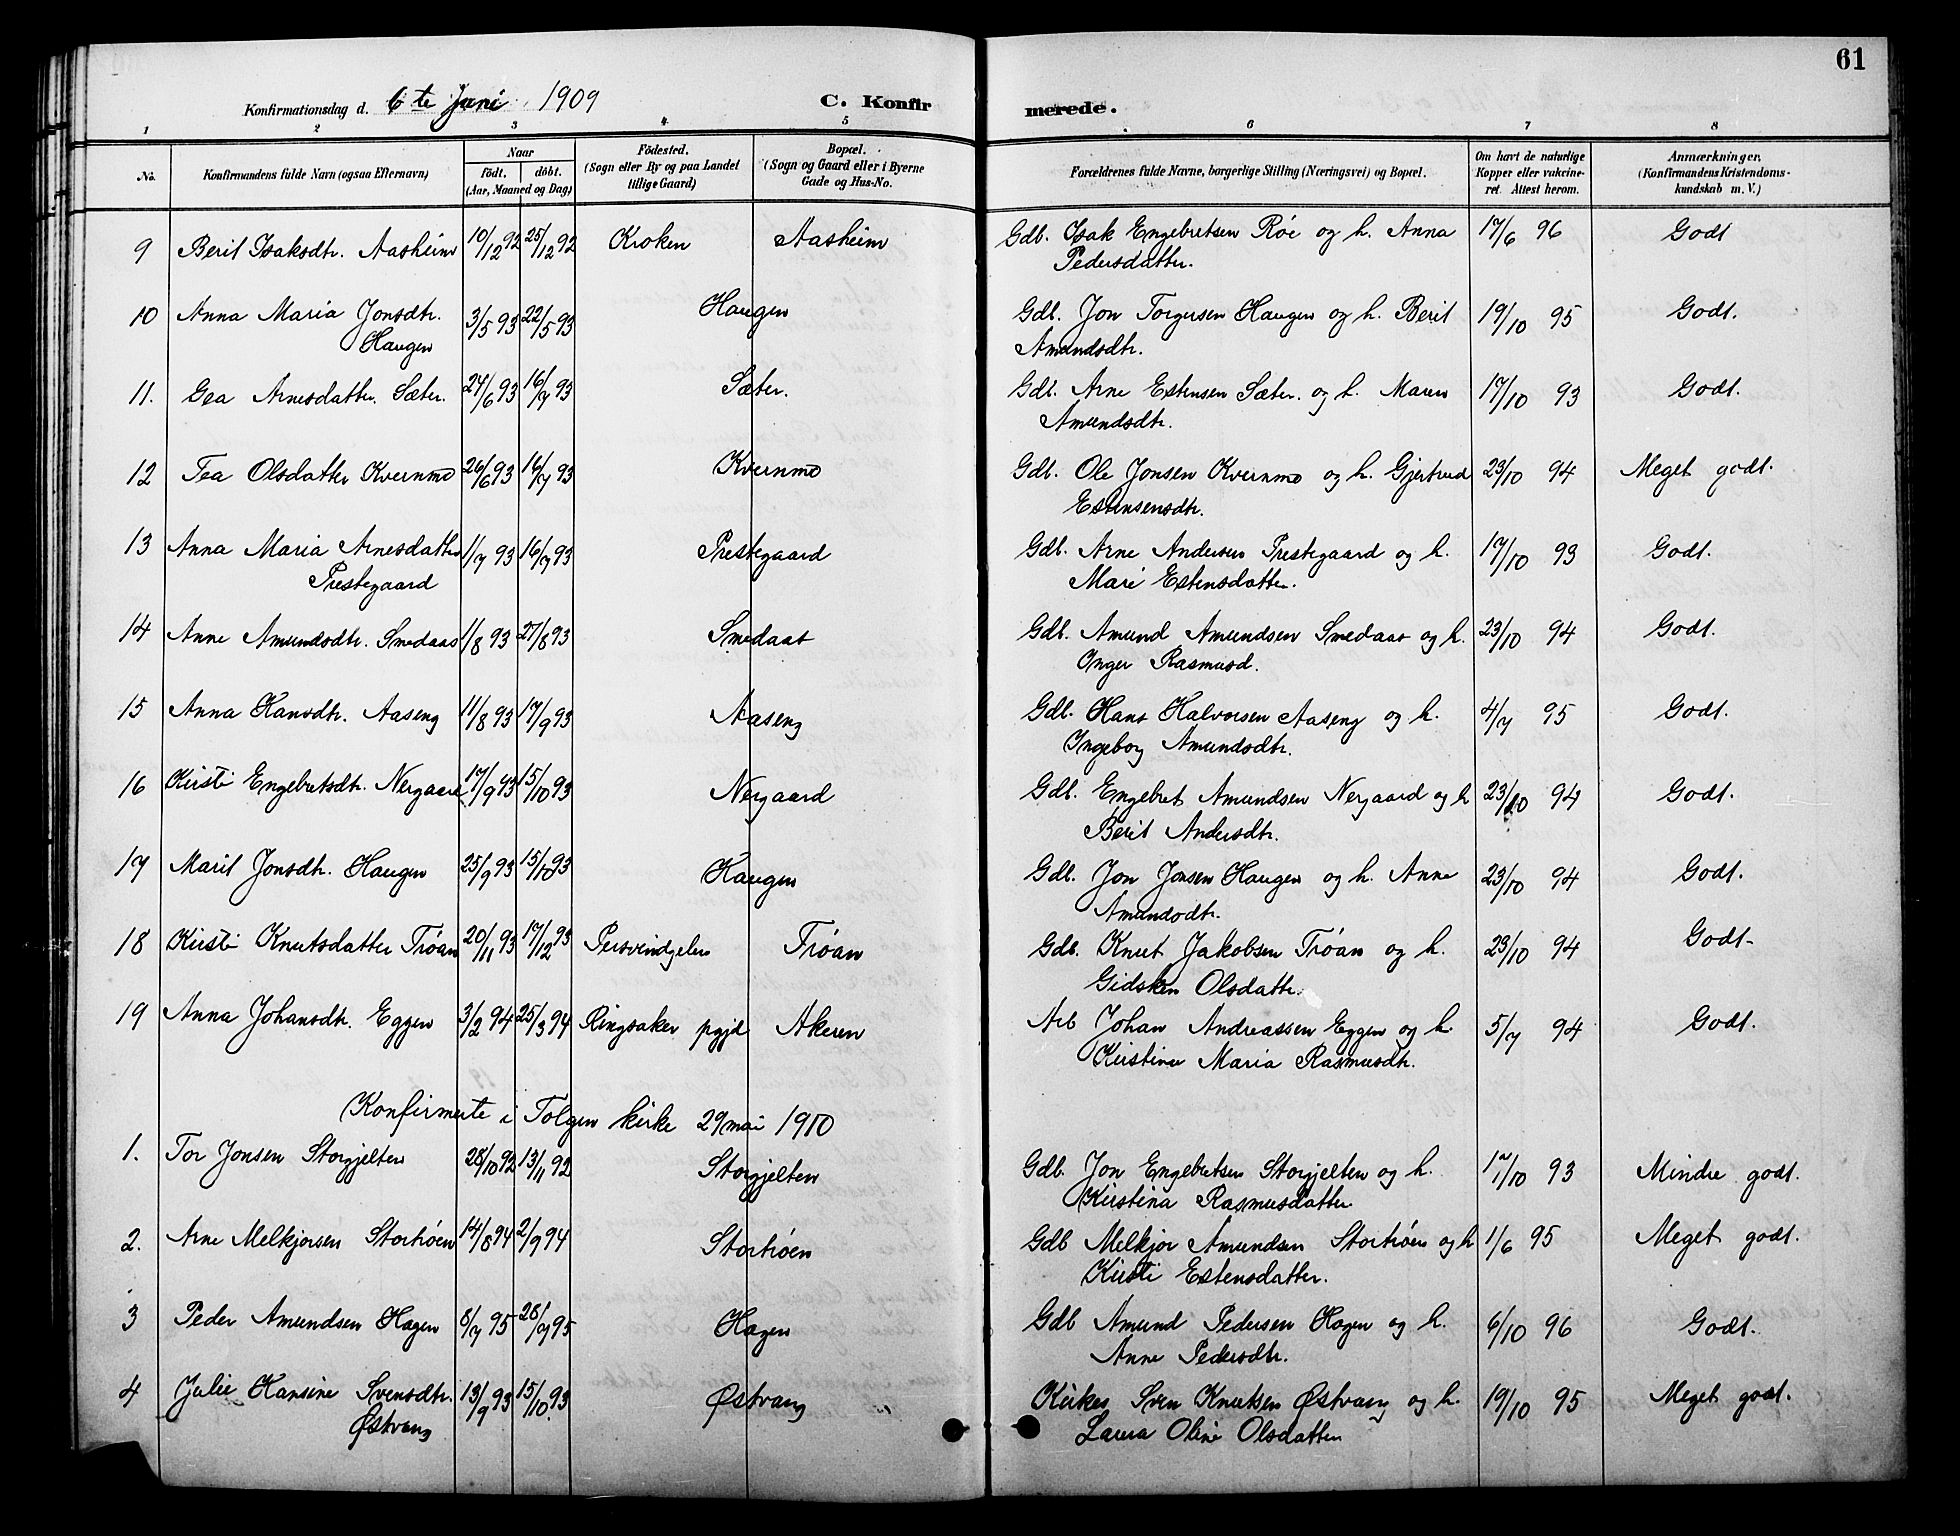 61
Konfirmationsdag d. 6te Juni 1909 C. Konfirmerede.
1 2 3 4 5 6 7 8
No. Konfirmandens fulde Navn (ogsaa Efternavn) Naar födt. döbt. (Aar, Maaned og Dag) Födested. (Sogn eller By og paa Landet tillige Gaard) Bopæl. (Sogn og Gaard eller i Byerne Gade og Hus-No. Forældrenes fulde Navne, borgerlige Stilling (Næringsvei) og Bopæl. Om havt de naturlige Kopper eller vakcineret. Attest herom. Anmærkninger. (Konfirmandens Kristendomskundskab m. V.)
9 Berit Isaksdtr. Aasheim 10/12 92 25/12 92 Kroken Aasheim Gdb. Isak Engebretsen Röe og h. Anna 17/6 96 Godt
Pedersdatter.
10 Anna Maria Jonsdtr. 3/5 93 22/5 93 Haugen Gdb. Jon Torgersen Haugen og h. Berit 19/10 95 Godt.
Haugen Amundsdtr.
11. Gea Arnesdatter. Sæter. 24/6 93 16/7 93 Sæter. Gdb. Arne Estensen Sæter. og h. Maren 17/10 93 Godt.
Amundsdtr.
12 Tea Olsdatter Kvernmo 26/6 93 16/7 93 Kvernmo Gdb. Ole Jonsen Kvernmo og h. Gjertrud 23/10 94 Meget godt.
Estensensdtr.
13 Anna Maria Arnesdatter 1/7 93 16/7 93 Prestegaard Gdb. Arne Andersen Prestegaard og h. 17/10 93 Godt.
Prestegaard Mari Estensdatter.
14 Anne Amundsdtr. Smedaas 1/8 93 27/8 93 Smedaas Gdb. Amund Amundsen Smedaas og h. 23/10 94 Godt.
Inger Rasmusd.
15 Anna Hansdtr. Aaseng 11/8 93 17/9 93 Aaseng Gdb. Hans Halvorsen Aaseng og h. 4/7 95 Godt.
Ingeborg Amundsdtr.
16 Kirsti Engebretsdtr. Nergaard 17/9 93 15/10 93 Nergaard Gdb. Engebret Amundsen Nergaard og h 23/10 94 Godt.
Berit Andersdtr.
17 Marit Jonsdtr. Haugen 25/9 93 15/10 93 Haugen Gdb. Jon Jonsen Haugen og h. Anne 23/10 94 Godt.
Amundsdtr.
18 Kirsti Knutsdatter Tröan 20/11 93 17/12 93 Tröan Gdb. Knut Jakobsen Tröan og h. 23/10 94 Godt.
Gidsken Olsdattr.
19 Anna Johansdtr. Eggen 3/2 94 25/3 94 Ringsaker pgjd Akeren Arb Johan Andreassen Eggen og h. 5/7 94 Godt.
Kirstine Maria Rasmusdtr.
Konfirmerte i Tolgen kirke 29 mai 1910
1. Tor Jonsen Storfjelten 28/10 92 13/11 92 Storfjelten Gdb. Jon Engebretsen Storfjelten og h. 17/10 93 Mindre godt.
Kirstina Rasmusdatter
2. Arne Melkjorsen Stortröen 14/8 94 2/9 94 Stortröen Gdb Melkjor Amundsen Stortröen og h 1/6 95 Meget godt.
Kirsti Estensdatter.
3 Peder Amundsen Hagen 8/7 95 28/7 95 Hagen Gdb Amund Pedersen Hagen og h. 6/10 96 Godt.
Anne Pedersdtr.
4 Julie Hansine Svensdtr. 13/9 93 15/10 93 Østvang Kirkes. Sven Knutsen Østvang og h. 19/10 95 Meget godt.
Østvang Laura Oline Olsdatter